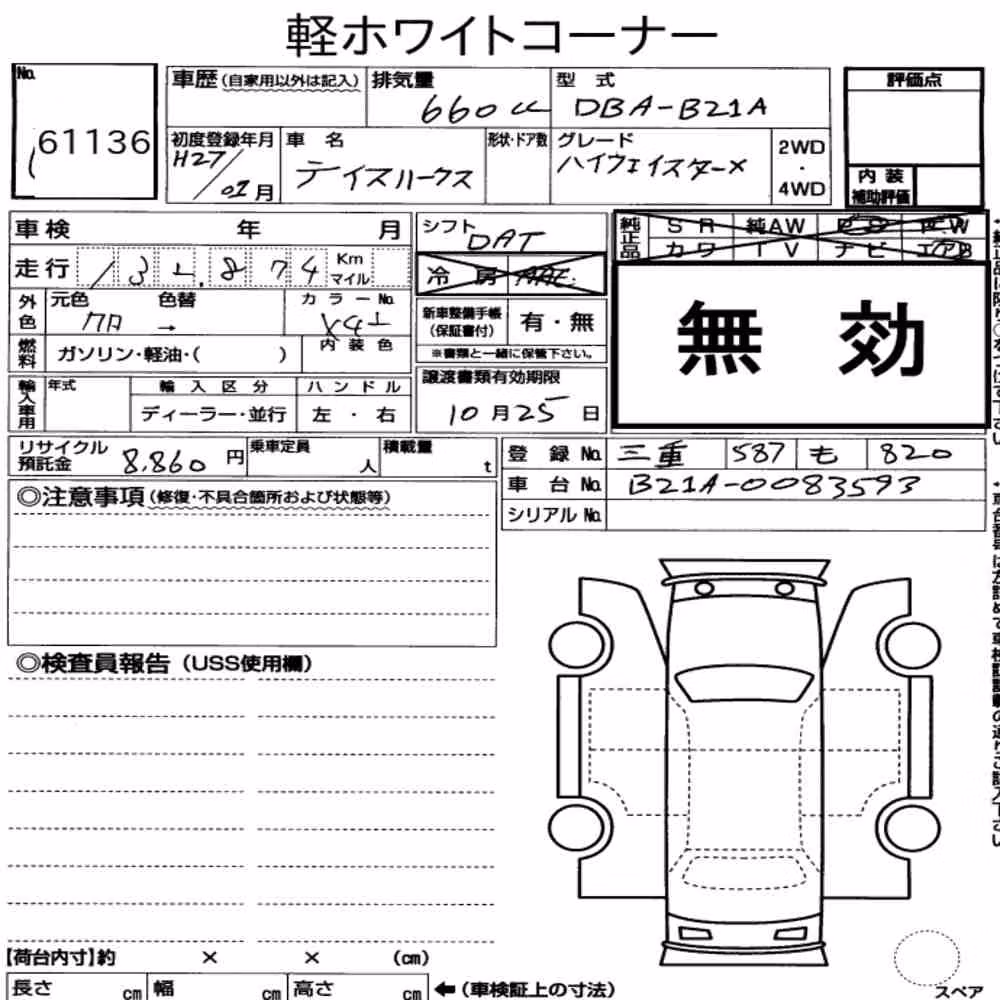 軽ホワイトコーナー
No. 61136
車歴(自家用以外は記入) 排気量 660cc 型式 DBA-B21A 評価点
初度登録年月 H27/01月 車名 デイズルークス 形状・ドア数 グレード ハイウェイスターX 2WD・4WD
内装補助評価
車検 年 月 シフト DAT 純正品 SR 純AW PS PW
走行 Km マイル 冷房 AAC カワ TV ナビ エアB
外色 元色 クロ 色替 → カラーNo. 内装色
新車整備手帳(保証書付) 有・無
※書類と一緒に保管下さい。
無効
燃料 ガソリン・軽油・( )
譲渡書類有効期限 10月25日
輸入車用 年式 輸入区分 ハンドル
ディーラー・並行 左・右
リサイクル預託金 8,860円 乗車定員 人 積載量 t
登録No. 三重 587 も 820
車台No. B21A-0083593
シリアルNo.
◎注意事項(修復・不具合箇所および状態等)
◎検査員報告(USS使用欄)
【荷台内寸】約 × × (cm)
長さ cm 幅 cm 高さ cm ←(車検証上の寸法)
スペア